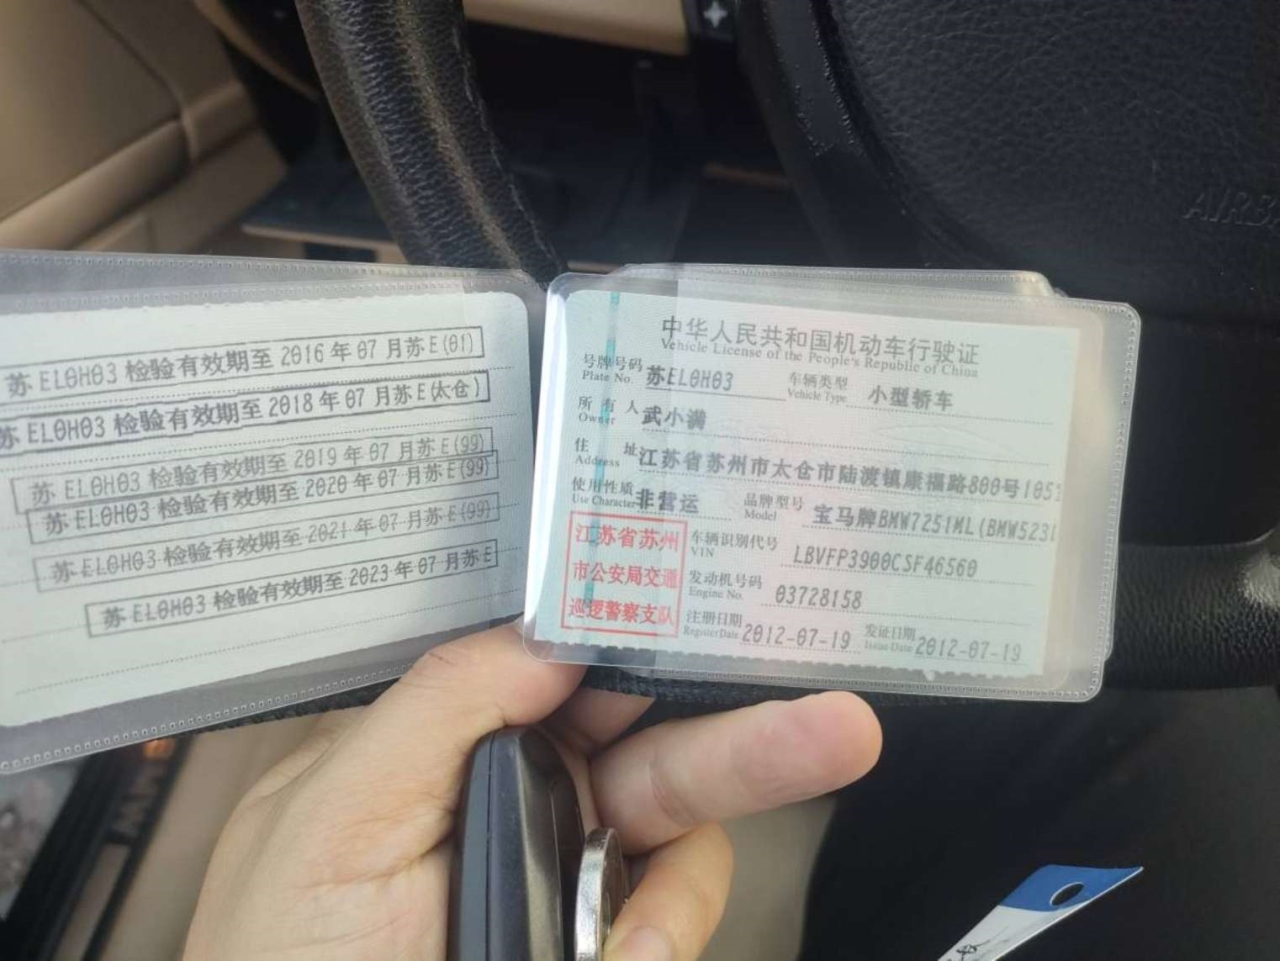 苏EL0H03 检验有效期至 2016 年 07 月苏E(01)
苏EL0H03 检验有效期至 2018 年 07 月苏E(太仓)
苏EL0H03 检验有效期至 2019 年 07 月苏E(99)
苏EL0H03 检验有效期至 2020 年 07 月苏E(99)
苏EL0H03 检验有效期至 2021 年 07 月苏E(99)
苏EL0H03 检验有效期至 2023 年 07 月苏E
中华人民共和国机动车行驶证
Vehicle License of the People's Republic of China
号牌号码 苏EL0H03 车辆类型 小型轿车
Plate No. Vehicle Type
所有人 武小满
Owner
住址 江苏省苏州市太仓市陆渡镇康福路800号105
Address
使用性质 非营运 品牌型号 宝马牌BMW7251ML(BMW523L
Use Character Model
江苏省苏州
市公安局交通
巡逻警察支队
车辆识别代号 LBVFP3900CSF46560
VIN
发动机号码 03728158
Engine No.
注册日期 2012-07-19 发证日期 2012-07-19
Register Date Issue Date
AIRB